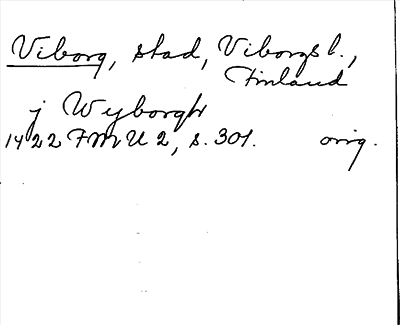 Viborg, stad, Viborgs l.,
Finland
j Wyborgh
1422 FMU 2, s. 301. orig.